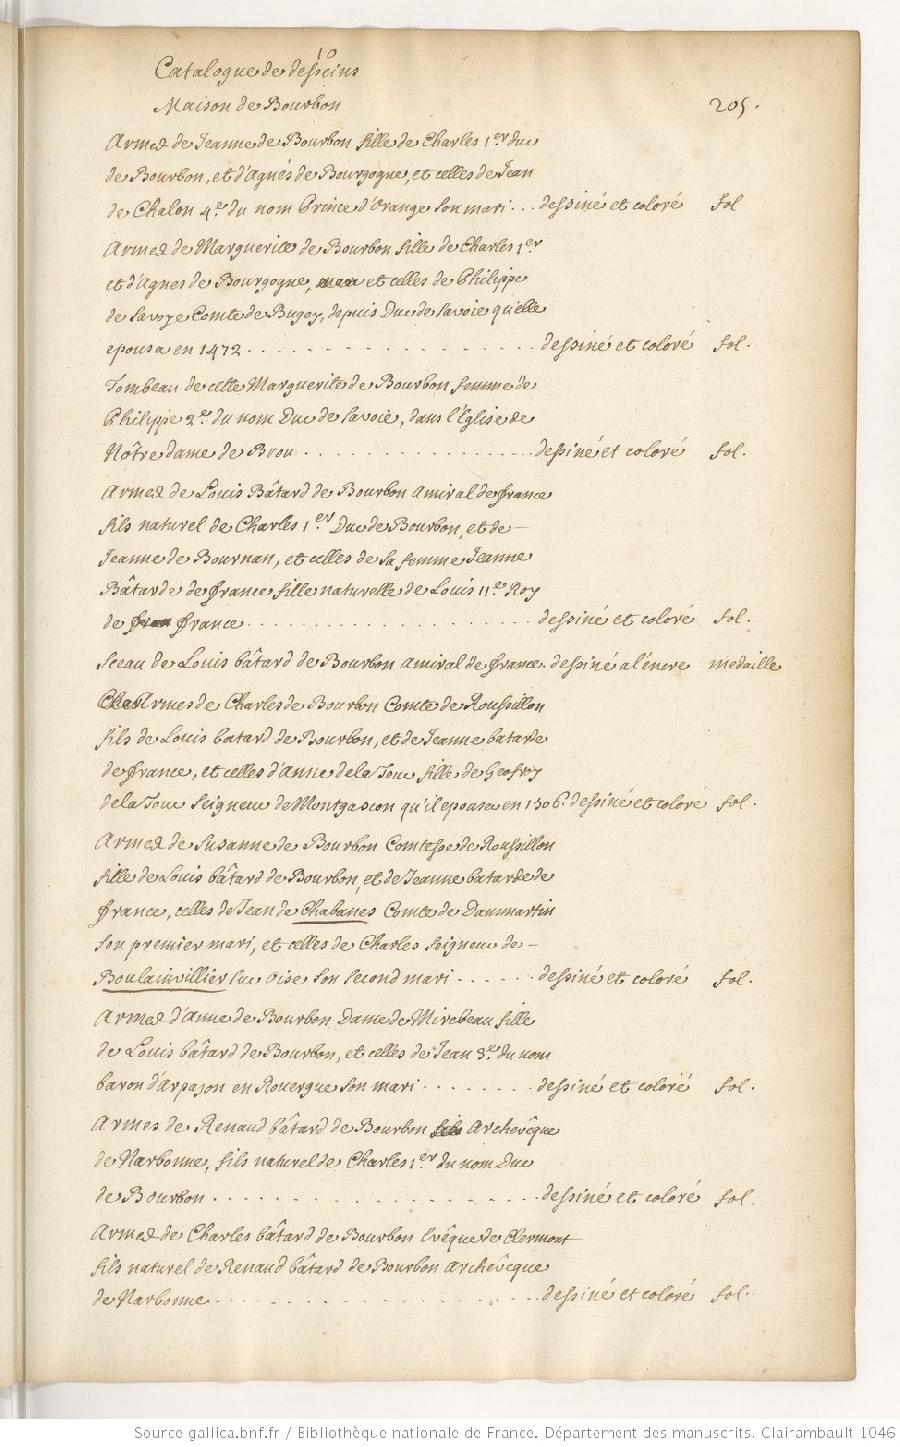 10
Catalogue de desseins
Maison de Bourbon
205.
Armes de Jeanne de Bourbon fille de Charles 1er duc
de Bourbon, et d'Agnés de Bourgogne, et celles de Jean
de Chalon 4e. du nom Prince d'Orange son mari... dessiné et coloré fol
Armes de Marguerite de Bourbon fille de Charles 1er
et d'Agnes de Bourgogne, et celles de Philippe
de Savoye Comte de Bugey, depuis Duc de Savoie qu'elle
epousa en 1472 . . . . . . . . . . . . . . . . dessiné et coloré fol.
Tombeau de cette Marguerite de Bourbon femme de
Philippe 2e. du nom Duc de Savoie, dans l'Eglise de
Nôtre dame de Brou . . . . . . . . . . . . . . . dessiné et coloré fol.
Armes de Louis Bâtard de Bourbon Amiral de france
fils naturel de Charles 1.er Duc de Bourbon, et de –
Jeanne de Bournan, et celles de sa femme Jeanne
Bâtarde de france fille naturelle de Louis 11.e Roy
de fran france . . . . . . . . . . . . . . . . . . dessiné et coloré fol.
Sceau de Louis bâtard de Bourbon amiral de france. dessiné a l'encre medaille
Armes de Charles de Bourbon Comte de Roussillon
fils de Louis batard de Bourbon, et de Jeanne batarde
de france, et celles d'Anne de la Tour fille de Geofroy
de la Tour Seigneur de Montgascon qu'il epousa en 1506. dessiné et coloré fol.
Armes de Susanne de Bourbon Comtesse de Roussillon
fille de Louis bâtard de Bourbon, et de Jeanne batarde de
france, celles de Jean de Chabanes Comte de Dammartin
son premier mari, et celles de Charles Seigneur de –
Boulainvillier sur Oise son second mari . . . . . . dessiné et coloré fol.
Armes d'Anne de Bourbon Dame de Mirebeau fille
de Louis bâtard de Bourbon, et celles de Jean 3.e du nom
baron d'Arpajon en Rouergue son mari . . . . . . . . dessiné et coloré fol.
Armes de Renaud bâtard de Bourbon fils Archevêque
de Narbonne, fils naturel de Charles 1.er du nom Duc
de Bourbon . . . . . . . . . . . . . . . . . . . . dessiné et coloré fol.
Armes de Charles bâtard de Bourbon Evêque de Clermont
fils naturel de Renaud bâtard de Bourbon Archêveque
de Narbonne . . . . . . . . . . . . . . . . . . . dessiné et coloré fol.
Source gallica.bnf.fr / Bibliothèque nationale de France. Département des manuscrits. Clairambault 1046